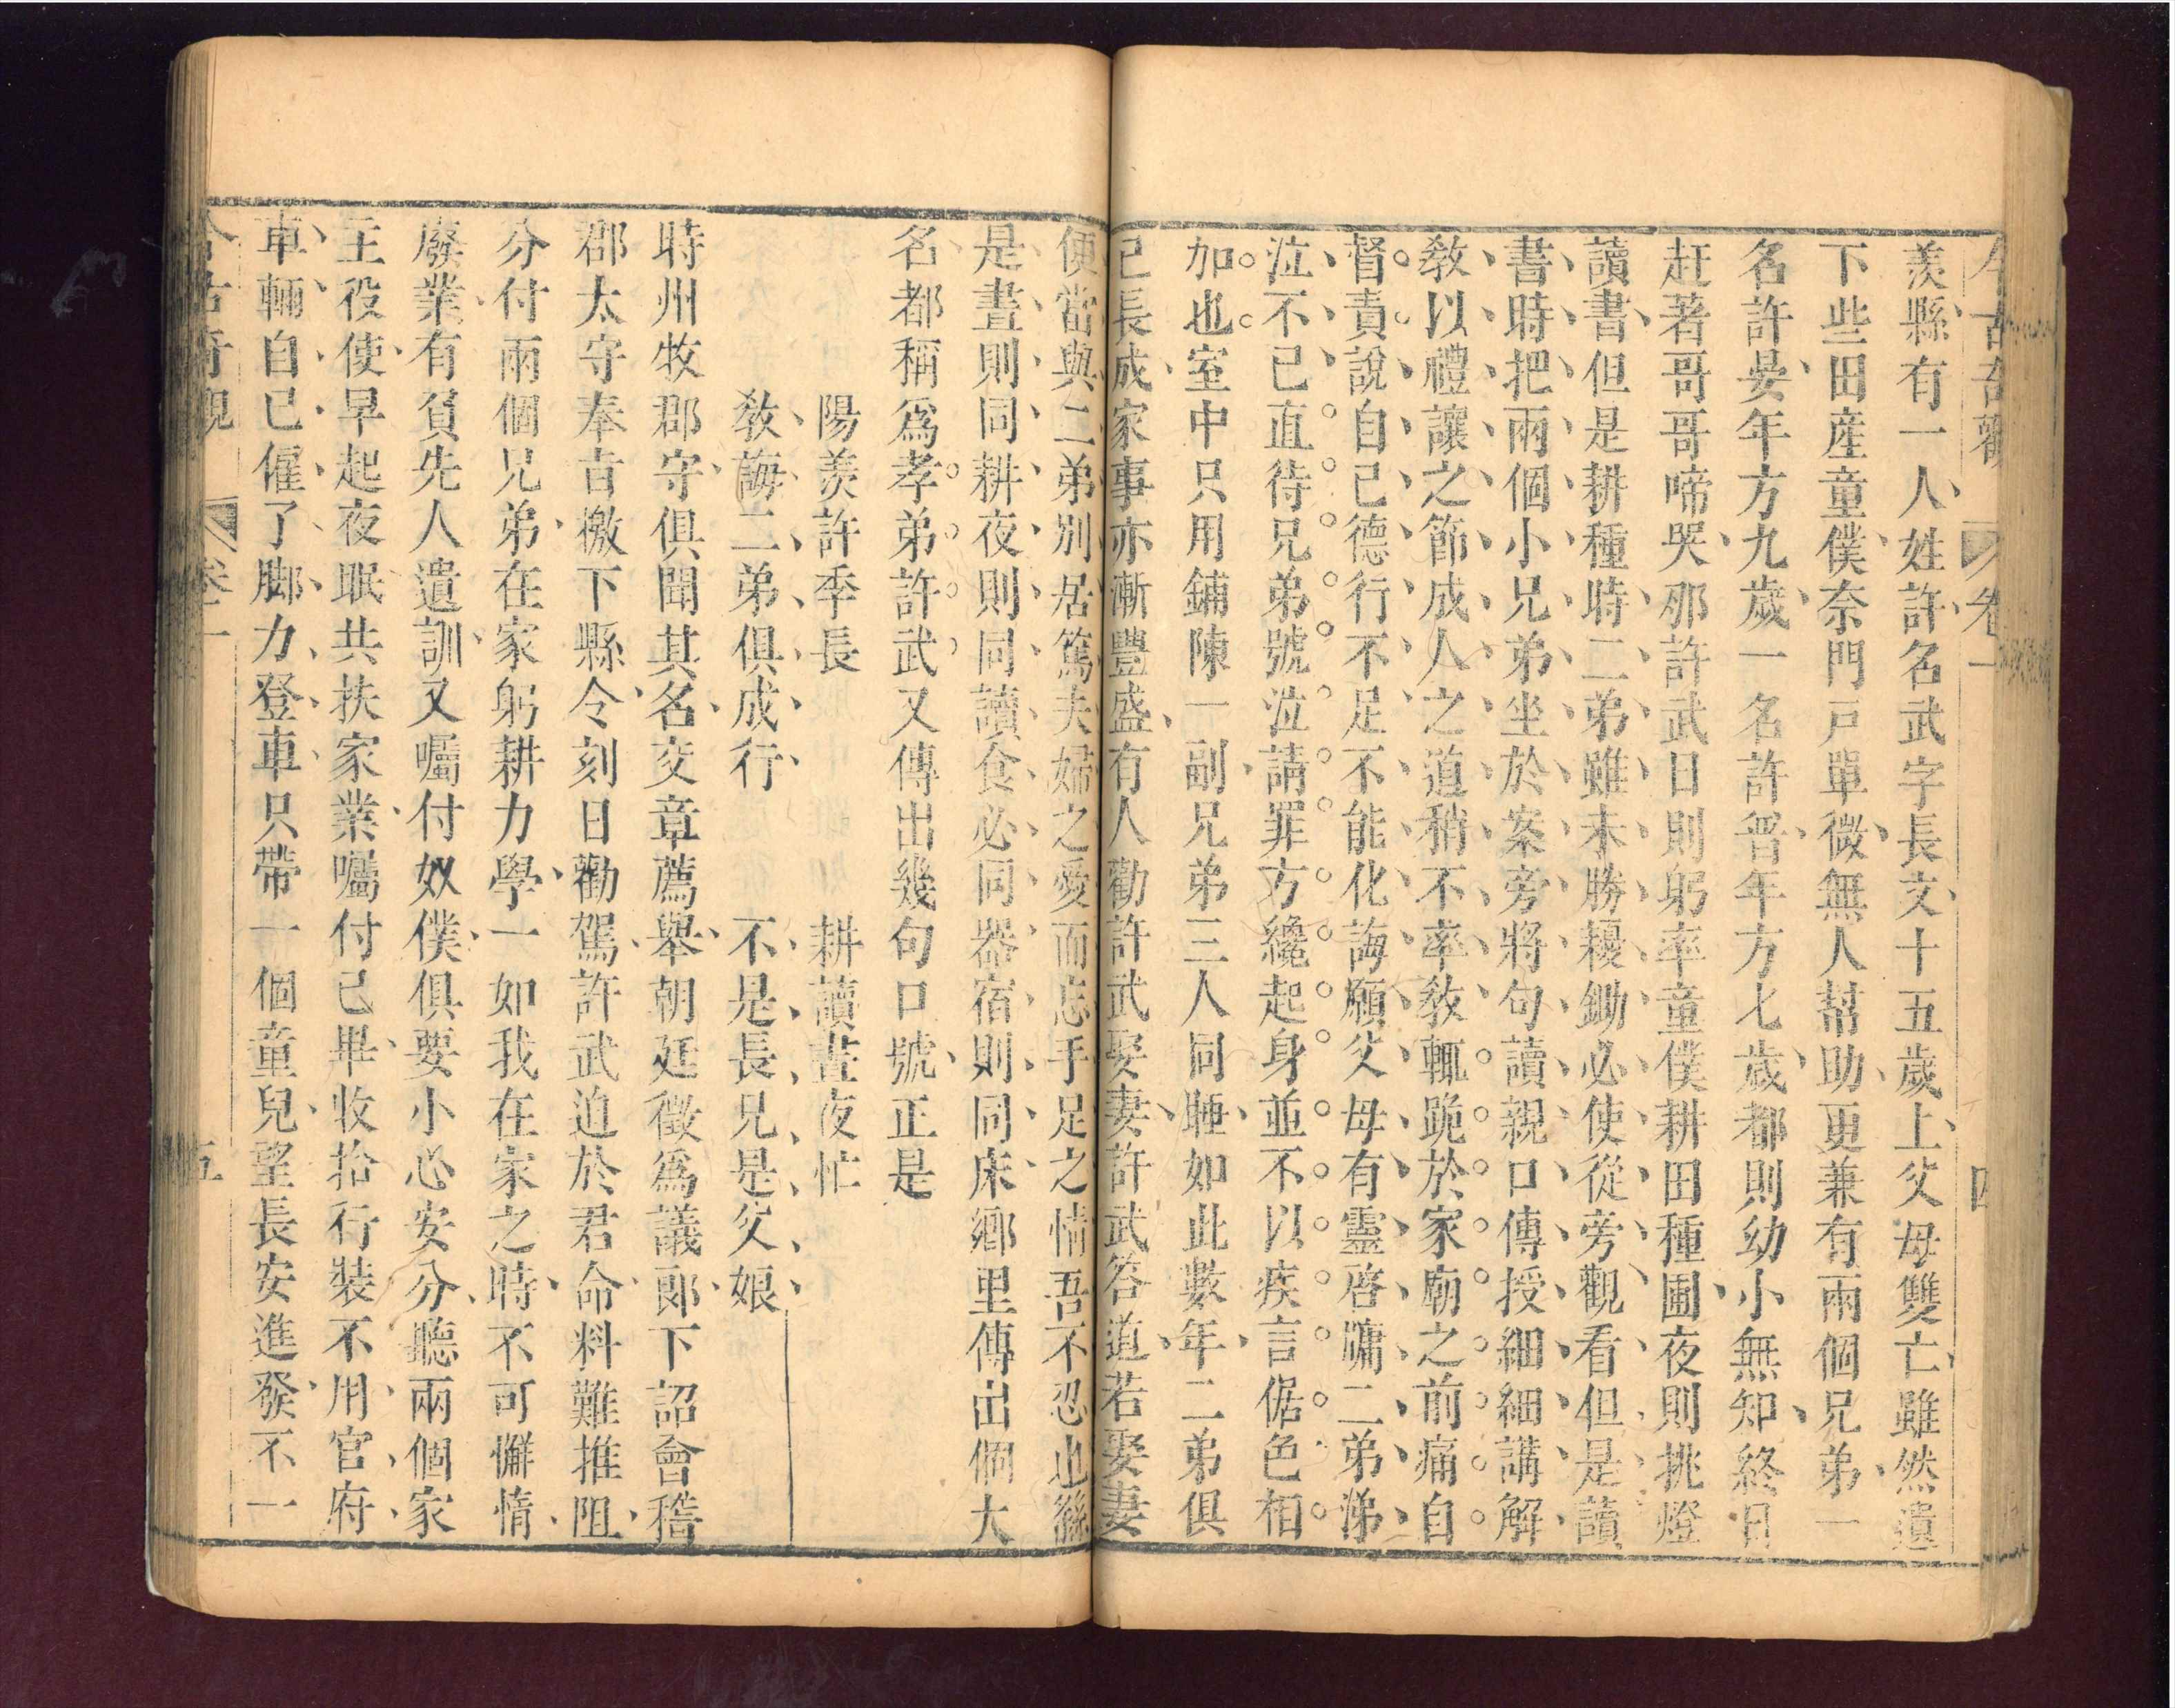 今古奇觀 卷一 四
羨縣有一人姓許名武字長文十五歲上父母雙亡雖然遺
下些田產童僕奈門戸單微無人幫助更兼有兩個兄弟一
名許晏年方九歲一名許晋年方七歳都則幼小無知終日
赶著哥哥啼哭那許武日則躬率童僕耕田種圃夜則挑燈
讀書但是耕種時二弟雖未勝耰鋤必使從旁觀看但是讀
書時把兩個小兄弟坐於案旁將句讀親口傳授細細講解
教以禮讓之節成人之道稍不率教輒跪於家廟之前痛自
督責說自己德行不足不能化誨願父母有靈啓牗二弟涕
泣不已直待兄弟號泣請罪方纔起身並不以疾言倨色相
加也室中只用鋪陳一副兄弟三人同睡如此數年二弟俱
已長成家事亦漸豐盛有人勸許武娶妻許武答道若娶妻
便當與二弟別居篤夫婦之愛而忘手足之情吾不忍也繇
是晝則同耕夜則同讀食必同器宿則同床鄉里傳出個大
名都稱爲孝弟許武又傳出幾句口號正是
陽羨許季長 耕讀晝夜忙
教誨二弟俱成行 不是長兄是父娘
時州牧郡守俱聞其名交章薦舉朝廷徵爲議郎下詔會稽
郡太守奉㫖檄下縣令刻日勸駕許武迫於君命料難推阻
分付兩個兄弟在家躬耕力學一如我在家之時不可懈惰
廢業有負先人遺訓又囑付奴僕俱要小心安分聽兩個家
主役使早起夜眠共扶家業囑付已畢收拾行裝不用官府
車輛自己僱了脚力登車只帶一個童兒望長安進發不一
今古奇觀 卷一 五